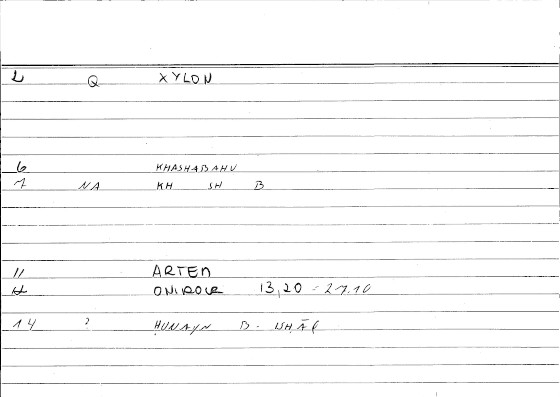 2 Q XYLON
6 KHASHABAHU
7 NA KH SH B
11 ARTEM
12 ONIROCR 13,20 = 27.10
14 ? ḤUNAYN B. ISḤĀQ